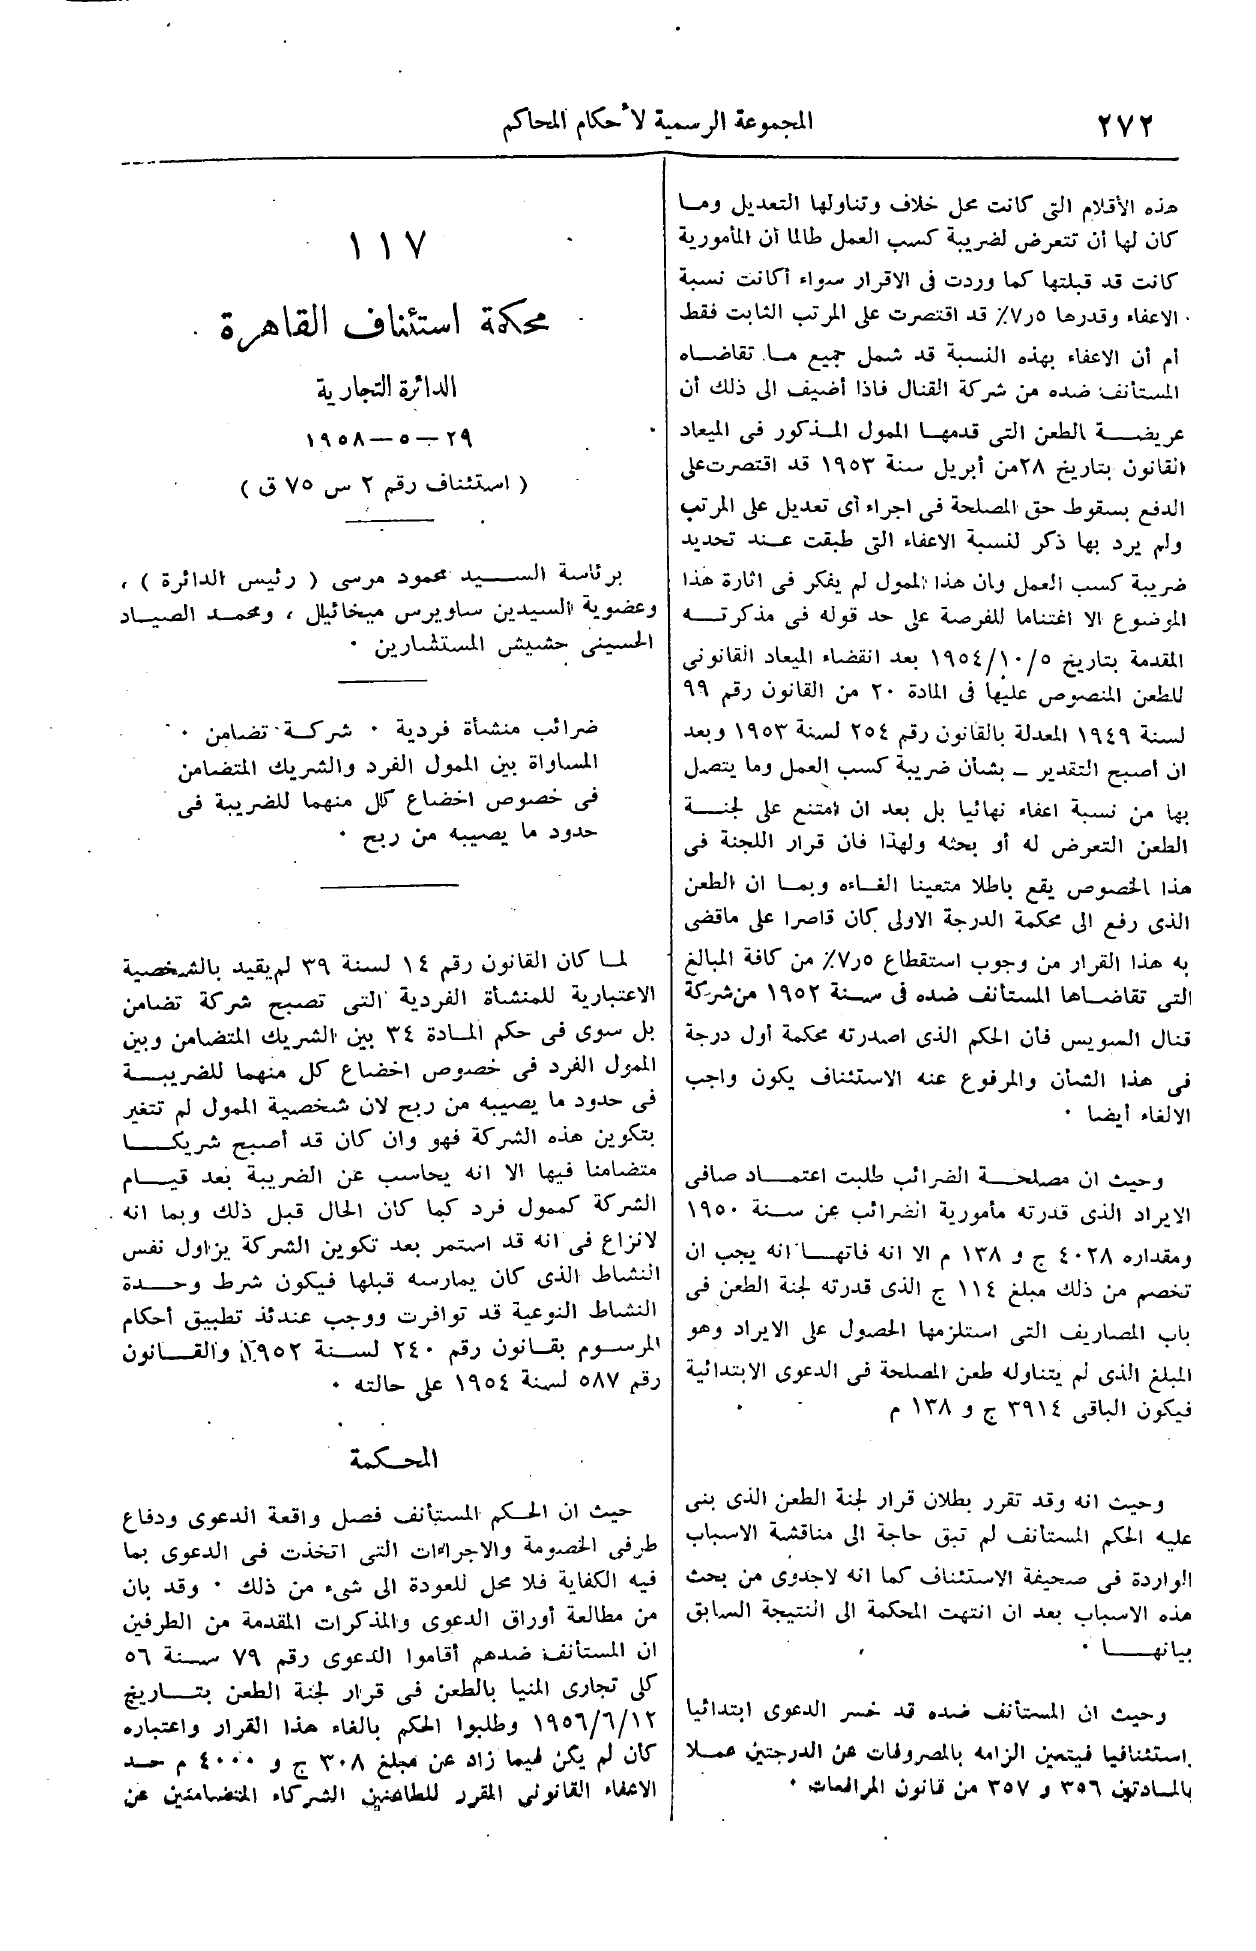 ٢٧٢
المجموعة الرسمية لأحكام المحاكم
هذه الأقلام التى كانت محل خلاف وتناولها التعديل وما
كان لها أن تتعرض لضريبة كسب العمل طالما أن المأمورية
كانت قد قبلتها كما وردت فى الاقرار سواء أكانت نسبة
الاعفاء وقدرها ٥ر٧٪ قد اقتصرت على المرتب الثابت فقط
أم أن الاعفاء بهذه النسبة قد شمل جميع ما تقاضاه
المستأنف ضده من شركة القنال فاذا أضيف الى ذلك أن
عريضة الطعن التى قدمها الممول المذكور فى الميعاد
القانون بتاريخ ٢٨ من أبريل سنة ١٩٥٣ قد اقتصرت على
الدفع بسقوط حق المصلحة فى اجراء أى تعديل على المرتب
ولم يرد بها ذكر لنسبة الاعفاء التى طبقت عند تحديد
ضريبة كسب العمل وان هذا الممول لم يفكر فى اثارة هذا
الموضوع الا اغتناما للفرصة على حد قوله فى مذكرته
المقدمة بتاريخ ١٩٥٤/١٠/٥ بعد انقضاء الميعاد القانونى
للطعن المنصوص عليها فى المادة ٢٠ من القانون رقم ٩٩
لسنة ١٩٤٩ المعدلة بالقانون رقم ٢٥٤ لسنة ١٩٥٣ وبعد
ان أصبح التقدير ــ بشأن ضريبة كسب العمل وما يتصل
بها من نسبة اعفاء نهائيا بل بعد ان امتنع على لجنة
الطعن التعرض له أو بحثه ولهذا فان قرار اللجنة فى
هذا الخصوص يقع باطلا متعينا الغاءه وبما ان الطعن
الذى رفع الى محكمة الدرجة الاولى كان قاصرا على ماقضى
به هذا القرار من وجوب استقطاع ٥ر٧٪ من كافة المبالغ
التى تقاضاها المستأنف ضده فى سنة ١٩٥٢ من شركة
قنال السويس فأن الحكم الذى اصدرته محكمة أول درجة
فى هذا الشأن والمرفوع عنه الاستئناف يكون واجب
الالغاء أيضا ٠
وحيث ان مصلحة الضرائب طلبت اعتماد صافى
الايراد الذى قدرته مأمورية الضرائب عن سنة ١٩٥٠
ومقداره ٤٠٢٨ ج و ١٣٨ م الا انه فاتها انه يجب ان
تخصم من ذلك مبلغ ١١٤ ج الذى قدرته لجنة الطعن فى
باب المصاريف التى استلزمها الحصول على الايراد وهو
المبلغ الذى لم يتناوله طعن المصلحة فى الدعوى الابتدائية
فيكون الباقى ٣٩١٤ ج و ١٣٨ م
وحيث انه وقد تقرر بطلان قرار لجنة الطعن الذى بنى
عليه الحكم المستأنف لم تبق حاجة الى مناقشة الاسباب
الواردة فى صحيفة الاستئناف كما انه لاجدوى من بحث
هذه الاسباب بعد ان انتهت المحكمة الى النتيجة السابق
بيانها ٠
وحيث ان المستأنف ضده قد خسر الدعوى ابتدائيا
استئنافيا فيتعين الزامه بالمصروفات عن الدرجتين عملا
بالمادتين ٣٥٦ و ٣٥٧ من قانون المرافعات ٠
١١٧
محكمة استئناف القاهرة
الدائرة التجارية
٢٩ــ٥ــ١٩٥٨
( استئناف رقم ٢ س ٧٥ ق )
برئاسة السيد محمود مرسى ( رئيس الدائرة ) ،
وعضوية السيدين ساويرس ميخائيل ، ومحمد الصياد
الحسينى حشيش المستشارين ٠
ضرائب منشأة فردية ٠ شركة تضامن ٠
المساواة بين الممول الفرد والشريك المتضامن
فى خصوص اخضاع كل منهما للضريبة فى
حدود ما يصيبه من ربح ٠
لما كان القانون رقم ١٤ لسنة ٣٩ لم يقيد بالشخصية
الاعتبارية للمنشأة الفردية التى تصبح شركة تضامن
بل سوى فى حكم المادة ٣٤ بين الشريك المتضامن وبين
الممول الفرد فى خصوص اخضاع كل منهما للضريبة
فى حدود ما يصيبه من ربح لان شخصية الممول لم تتغير
بتكوين هذه الشركة فهو وان كان قد أصبح شريكا
متضامنا فيها الا انه يحاسب عن الضريبة بعد قيام
الشركة كممول فرد كما كان الحال قبل ذلك وبما انه
لانزاع فى انه قد استمر بعد تكوين الشركة يزاول نفس
النشاط الذى كان يمارسه قبلها فيكون شرط وحدة
النشاط النوعية قد توافرت ووجب عندئذ تطبيق أحكام
المرسوم بقانون رقم ٢٤٠ لسنة ١٩٥٢ والقانون
رقم ٥٨٧ لسنة ١٩٥٤ على حالته ٠
المحكمة
حيث ان الحكم المستأنف فصل واقعة الدعوى ودفاع
طرفى الخصومة والاجراءات التى اتخذت فى الدعوى بما
فيه الكفاية فلا محل للعودة الى شىء من ذلك ٠ وقد بان
من مطالعة أوراق الدعوى والمذكرات المقدمة من الطرفين
ان المستأنف ضدهم أقاموا الدعوى رقم ٧٩ سنة ٥٦
كلى تجارى المنيا بالطعن فى قرار لجنة الطعن بتاريخ
١٩٥٦/٦/١٢ وطلبوا الحكم بالغاء هذا القرار واعتباره
كان لم يكن فيما زاد عن مبلغ ٣٠٨ ج و ٤٠٠٠ م حد
الاعفاء القانونى المقرر للطاعنين الشركاء المتضامنين عن